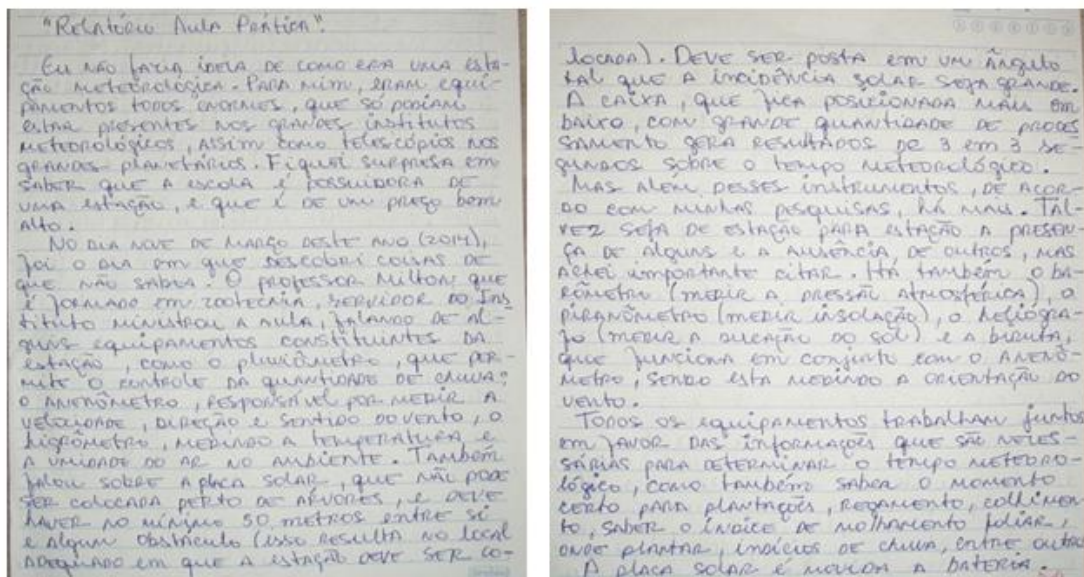 "Relatório Aula Prática".
Eu não fazia ideia de como era uma esta-
ção meteorológica. Para mim, eram equi-
pamentos todos enormes, que só podiam
estar presentes nos grandes institutos
meteorológicos, assim como telescópios nos
grandes planetários. Fiquei surpresa em
saber que a escola é possuidora de
uma estação, e que é de um preço bem
alto.
No dia nove de março deste ano (2014),
foi o dia em que descobri coisas de
que não sabia. O professor Milton que
é formado em zootecnia, servidor do Ins
tituto ministrou a aula, falando de al-
guns equipamentos constituintes da
estação, como o pluviômetro, que per-
mite o controle da quantidade de chuva;
o anenômetro, responsável por medir a
velocidade, direção e sentido do vento, o
higrômetro, medindo a temperatura e
a umidade do ar no ambiente. Também
falou sobre a placa solar, que não pode
ser colocada perto de árvores, e deve
haver no mínimo 50 metros entre si
e algum obstáculo (isso resulta no local
adequado em que a estação deve ser co-
locada). Deve ser posta em um ângulo
tal que a incidência solar seja grande.
A caixa, que fica posicionada mais em
baixo, com grande quantidade de proces
samento gera resultados de 3 em 3 se-
gundos sobre o tempo meteorológico.
Mas alem desses instrumentos, de acor-
do com minhas pesquisas, há mais. Tal-
vez seja de estação para estação a presen-
ça de alguns e a ausência de outros, mas
achei importante citar. Há também o ba-
rômetro (medir a pressão atmosférica), o
piranômetro (medir insolação), o heliógra-
fo (medir a duração do sol) e a biruta,
que funciona em conjunto com o anenô-
metro, sendo esta medindo a orientação do
vento.
Todos os equipamentos trabalham juntos
em favor das informações que são neces-
sárias para determinar o tempo meteoro-
lógico, como também saber o momento
certo para plantações, regamento, colhimen-
to, saber o índice de molhamento foliar,
onde plantar, indícios de chuva, entre outro
A placa solar é movida a bateria.